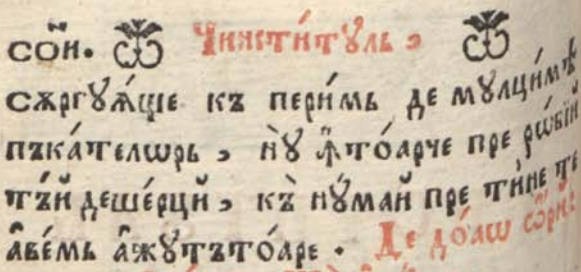 со́й. Чинсти́тꙋль ,
сѫргꙋѧ́ще къ пери́мь де мꙋлци́мѣ
пъка́телѡрь , нꙋ̀ ꙟ҆то́арче пре рѡ́бїй
тъ́й деше́рци̂ , къ нꙋ́май пре ти́не те
а҆ве́мь а҆жꙋтъто́аре . Де до́аѡ ѡ҆́рй :